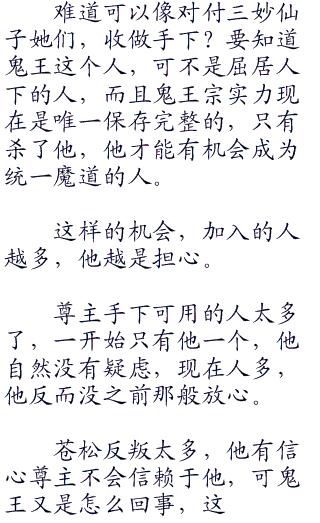 难道可以像对付三妙仙
子她们，收做手下？要知道
鬼王这个人，可不是屈居人
下的人，而且鬼王宗实力现
在是唯一保存完整的，只有
杀了他，他才能有机会成为
统一魔道的人。
这样的机会，加入的人
越多，他越是担心。
尊主手下可用的人太多
了，一开始只有他一个，他
自然没有疑虑，现在人多，
他反而没之前那般放心。
苍松反叛太多，他有信
心尊主不会信赖于他，可鬼
王又是怎么回事，这